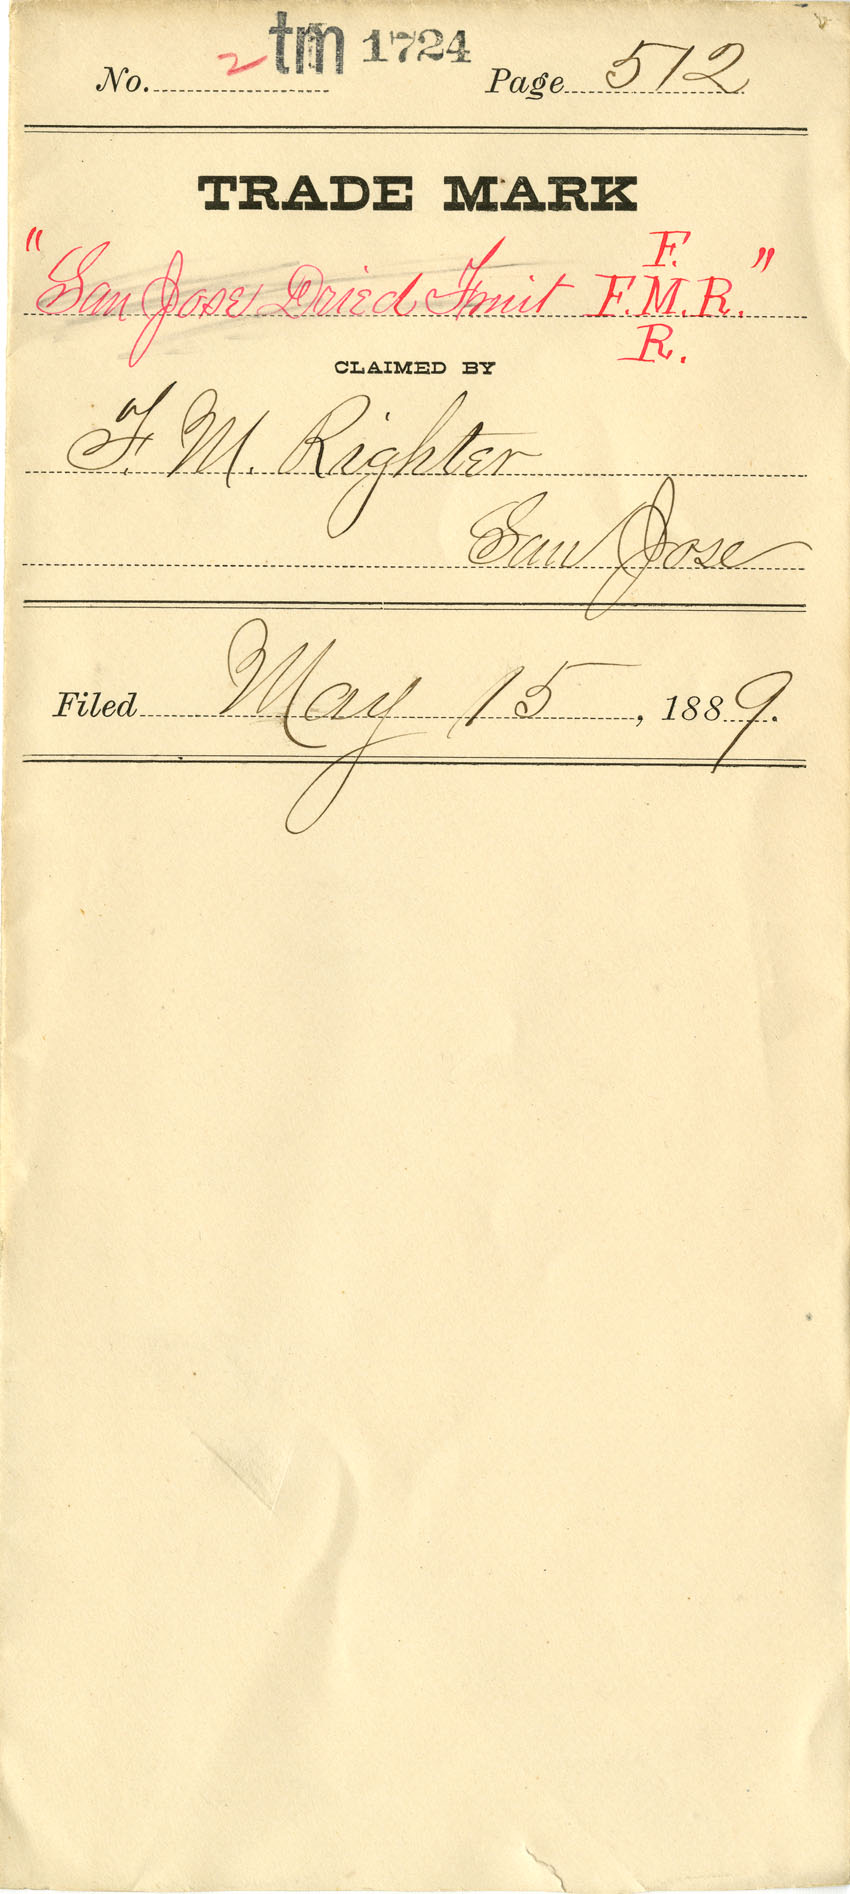 No. 2 tm 1724 Page 512
TRADE MARK
F.
"San Jose Dried Fruit F.M.R."
R.
CLAIMED BY
F. M. Righter
San Jose
Filed May 15, 1889.